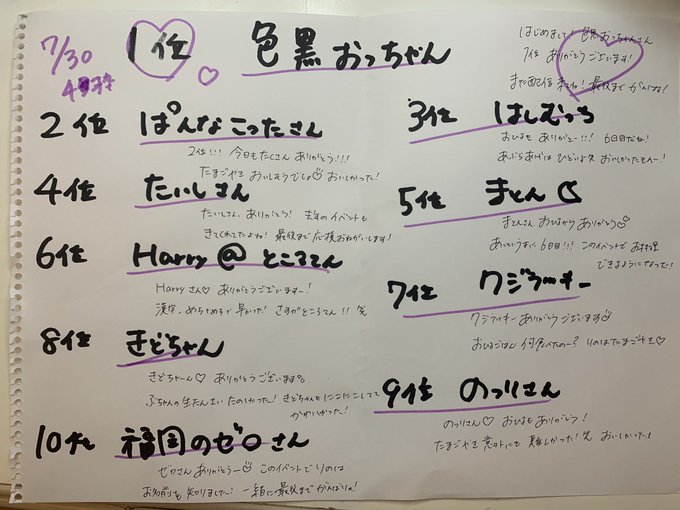 7/30
4枠
1位 色黒おっちゃん
はじめまして! 色黒おっちゃんさん
1位 ありがとうございます!
また配信来てね! 最後まで がんばるね!
2位 ぱんなこったさん
2位!!! 今日もたくさん ありがとう!!!
たまごやき おいしそうでしょ♡ おいしかった!
3位 はしむっち
おひるも ありがとー!!! 6日目だね!
あぶらあげは ひどいよ久 おいしかったてんー!
4位 たいしさん
たいしさん、ありがとう! 去年のイベントも
きてくれてたよね! 最後まで応援おねがいします!
5位 まとん
まとんさん おひるから ありがとう♡
あっというまに 6日目!!! このイベントで お料理
できるようになった!
6位 Harry@ところてん
Harryさん♡ ありがとうございますー!
漢字、めちゃめちゃ 早かった! さすがところてん!! 笑
7位 クジラッキー
クジラッキー ありがとう ございます
おひるごはん 何食べたのー? りのはたまごやき♡
8位 きどちゃん
きどちゃーん♡ ありがとう ございます。
ぶちゃんの生たんさい たのしかった! きどちゃんも にこにこしてて
かわいかった!
9位 のっりさん
のっりさん♡ おひるも ありがとう!
たまごやき 意外にも 難しかった! 笑 おいしいかったー!
10位 福岡のゼロさん
ゼロさん ありがとうー♡ このイベントで りのは
お名前を 知りました! 一緒に 最後まで がんばりょ!